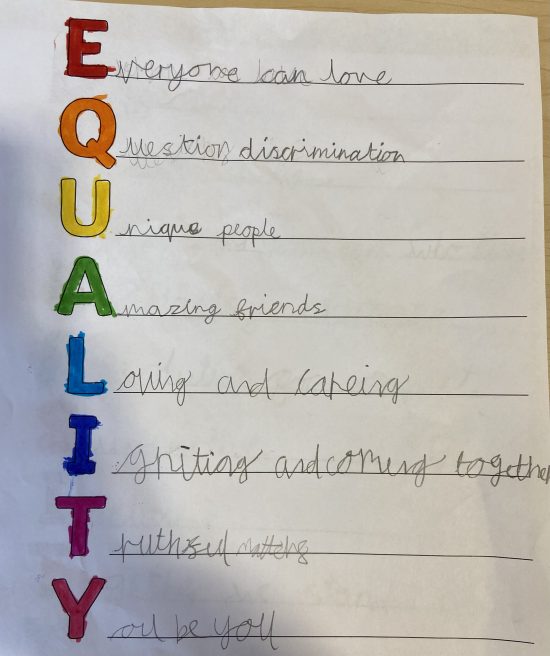 Everyone can love
Question discrimination
Unique people
Amazing friends
Loving and careing
Igniting and coming together
Truthful matters
You be you